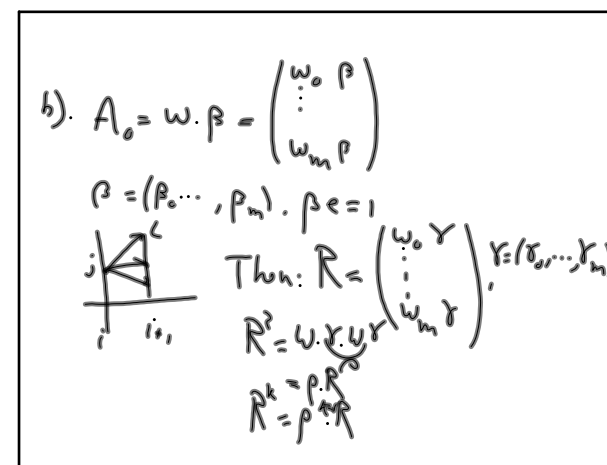 b). A₀ = ω·β = ( ω₀ β ⋮ ωₘ β )
β = (β₀ ⋯ , βₘ). βe = 1
j i i+1
Then: R = ( ω₀ γ ⋮ ωₘ γ ), γ = (γ₀, ⋯, γₘ
R² = ω·γ·ω γ
= ρ·R
Rᵏ = ρᵏ⁻¹·R